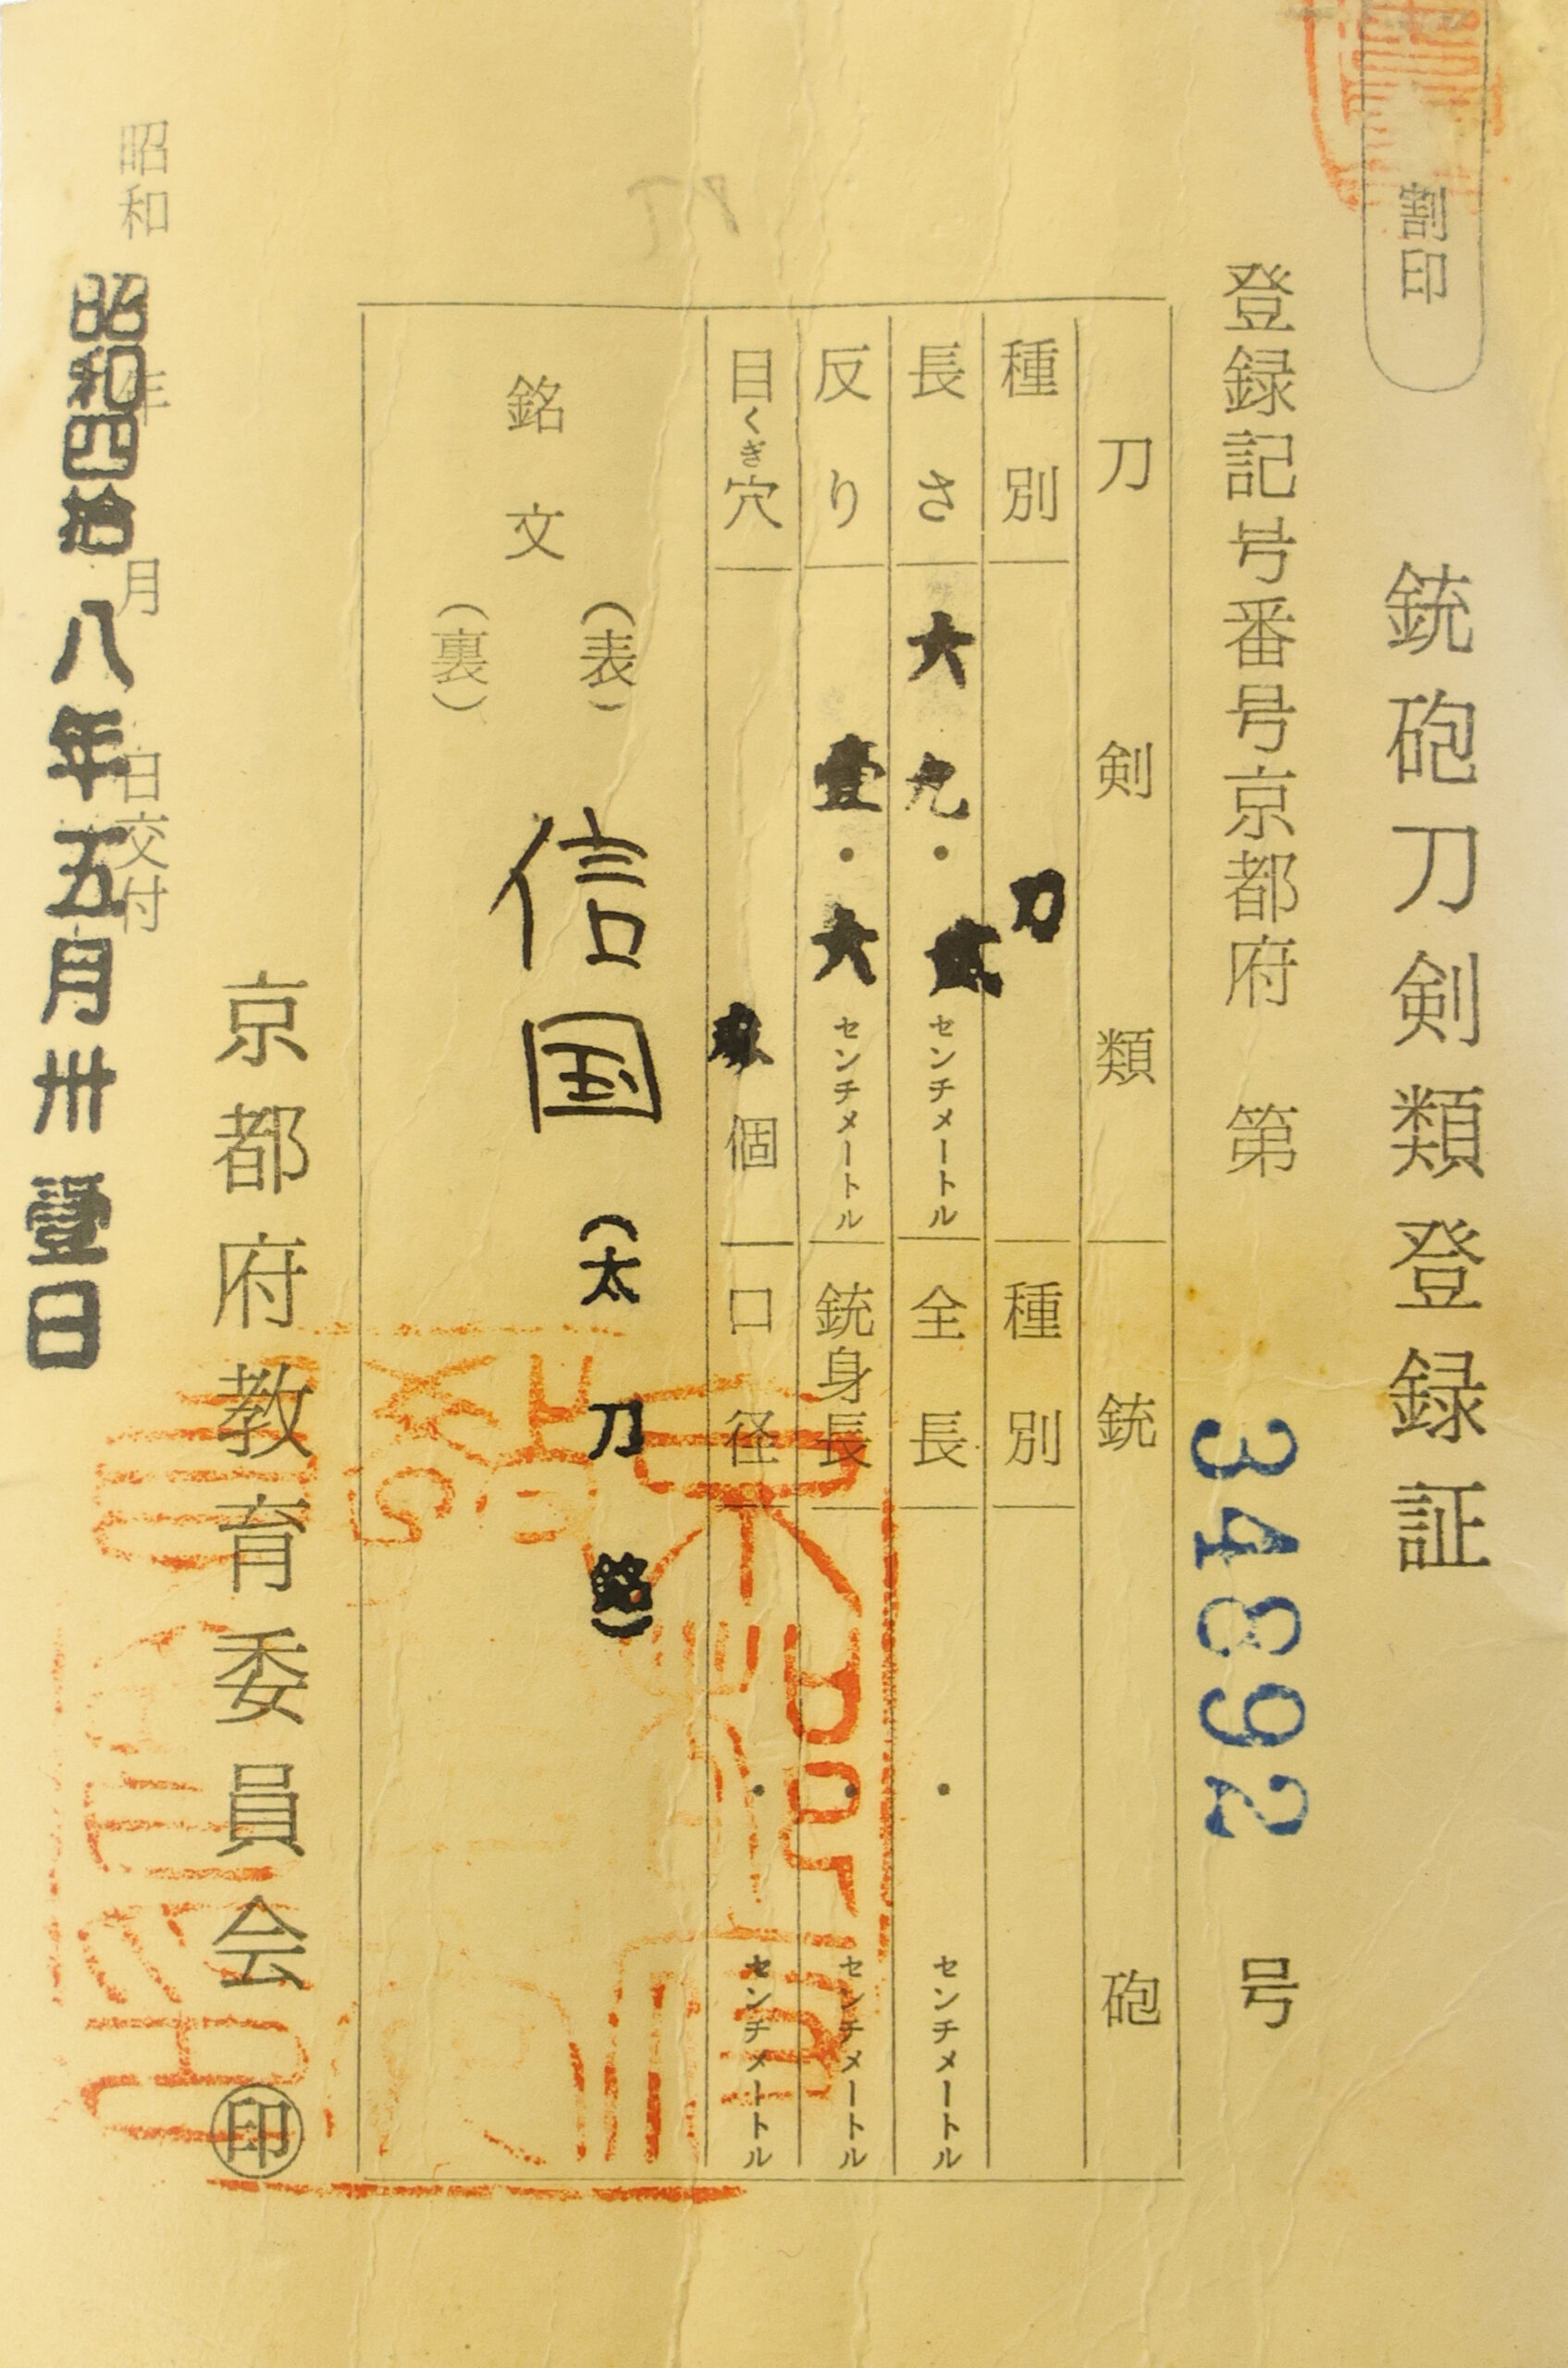 割印
銃砲刀剣類登録証
登録記号番号京都府 第 34892 号
刀剣類 銃砲
種別 刀 種別
長さ 六九・貳 センチメートル 全長 ・ センチメートル
反り 壹・六 センチメートル 銃身長 ・ センチメートル
目くぎ穴 個 口径 ・ センチメートル
銘文 (表) 信国 (太刀銘)
(裏)
京都府教育委員会 印
昭和 年 月 日交付
昭和四拾八年五月卅壹日